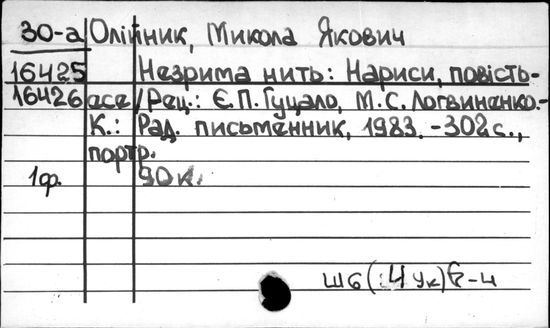 30-а Олійник, Микола Якович
16425 Незрима нить: Нариси, повість-
16426 есе /Рец.: Є.П.Гуцало, М.С.Логвиненко.-
К.: Рад. письменник, 1983. -302с.,
портр.
1ф. 90к.
Ш6(4Ук)6-4